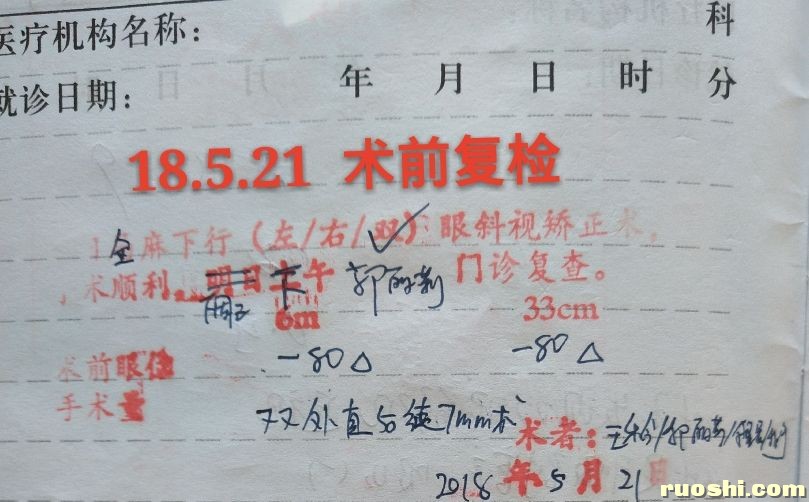 医疗机构名称： 科
就诊日期： 年 月 日 时 分
18.5.21 术前复检
1 全麻下行（左/右/双）眼斜视矫正术，
术顺利。明日上午 下 郭丽莉 门诊复查。
6m 33cm
术前眼位 -80△ -80△
手术量 双外直后徙7mm术
术者：
2018年5月21日
ruoshi.com